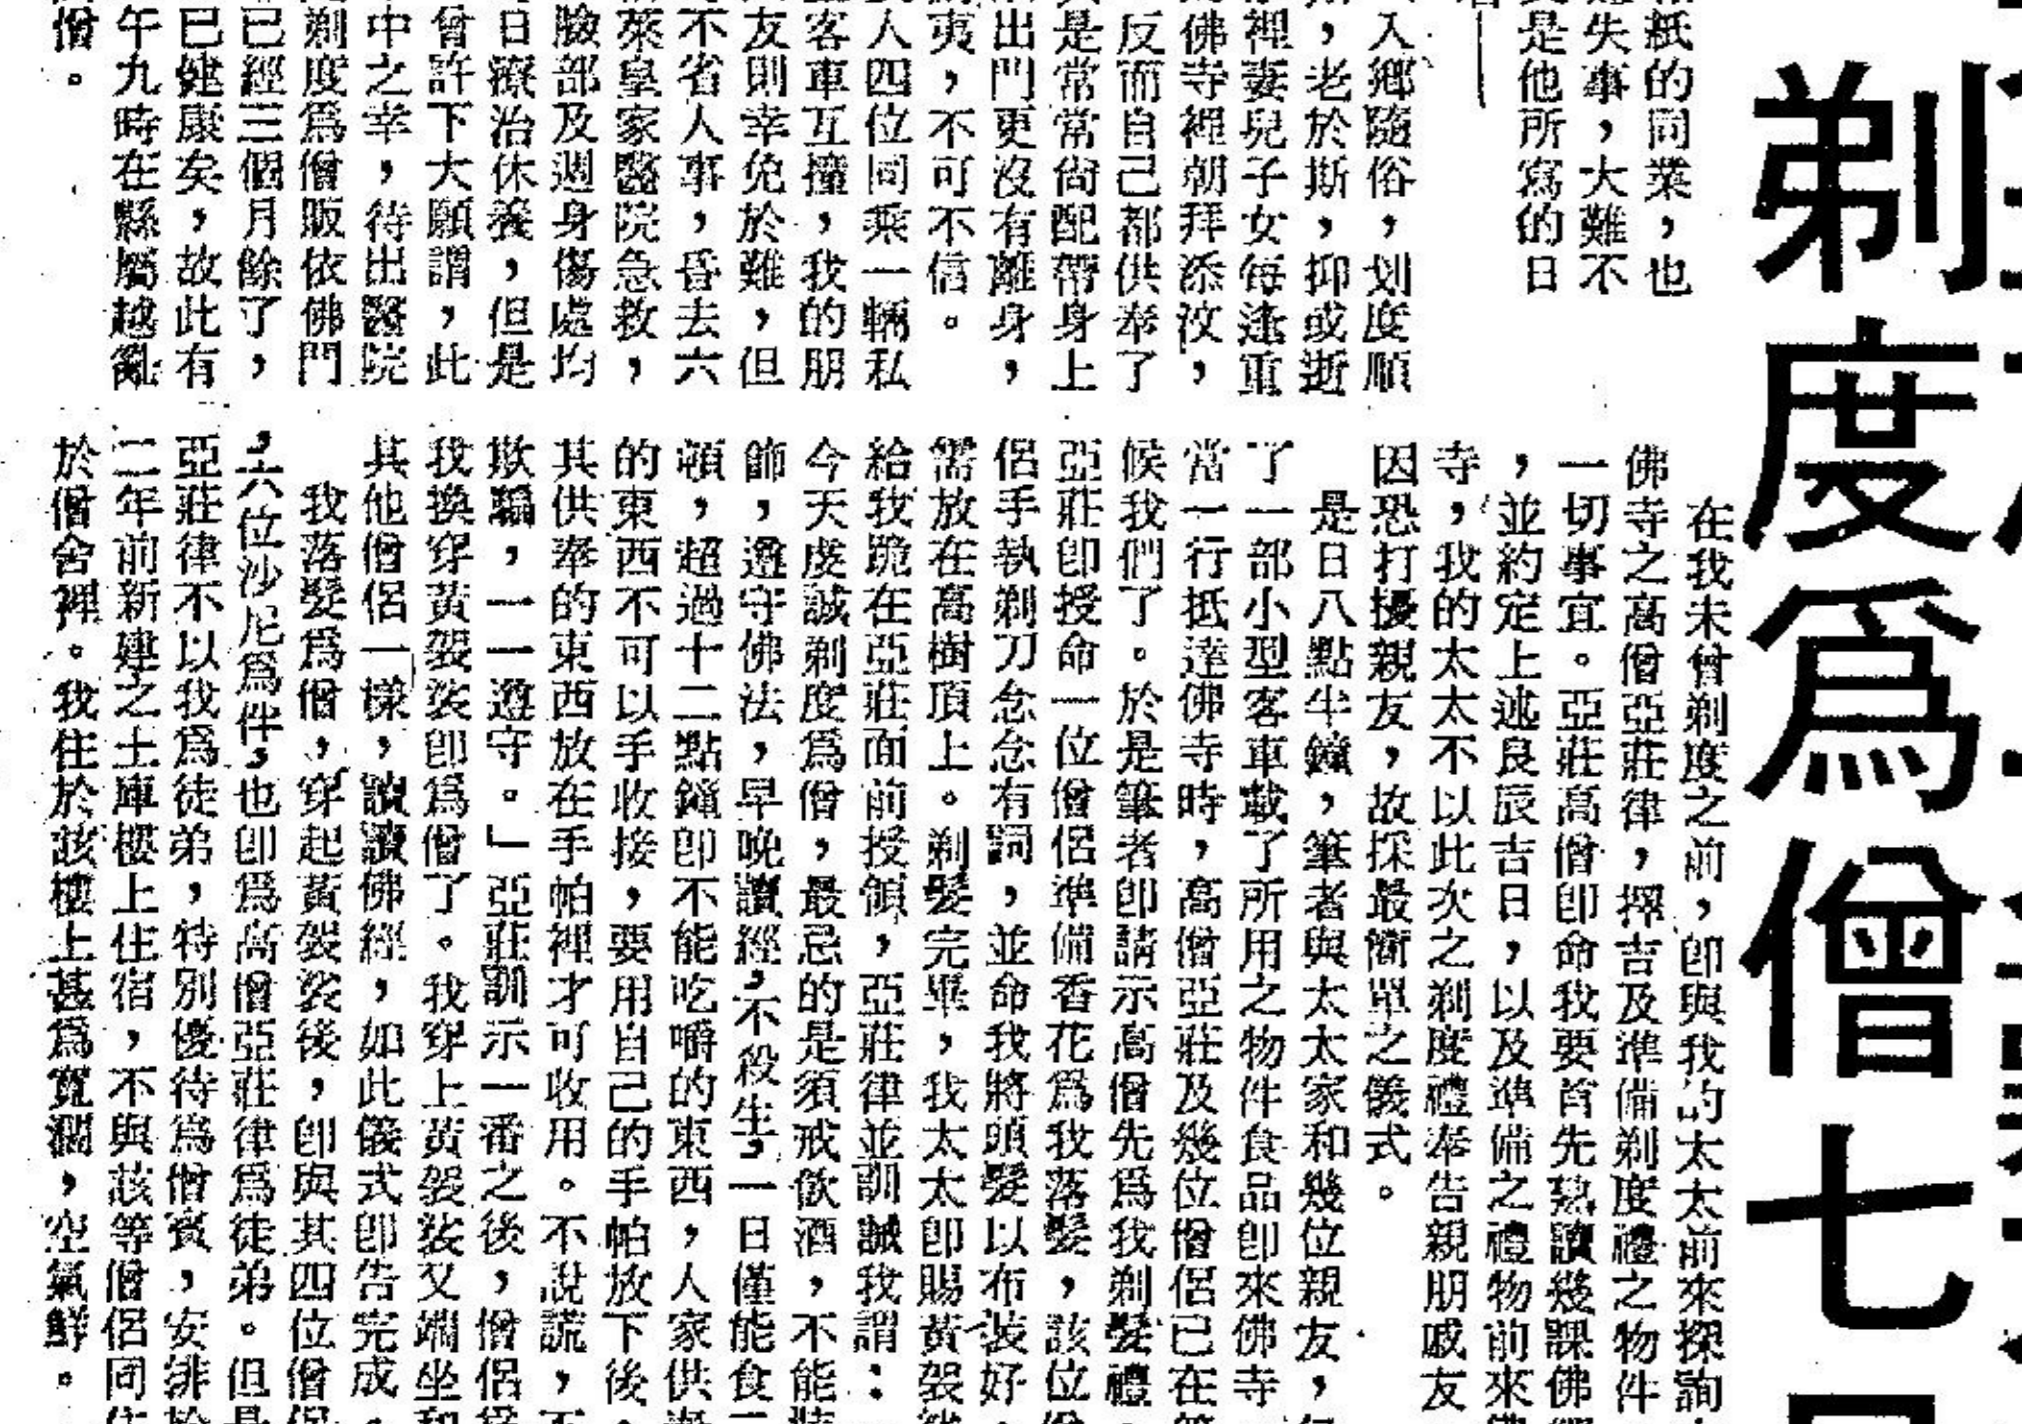 剃度爲僧七
紙的同業，也
失事，大難不
是他所寫的日
入鄉隨俗，划度順
，老於斯，抑或逝
裡妻兒子女每逢重
佛寺裡朝拜添汶，
反而自己都供奉了
是常常尙配帶身上
出門更沒有離身，
夷，不可不信。
人四位同乘一輛私
客車互撞，我的朋
友則幸免於難，但
不省人事，昏去六
萊皇家醫院急救，
臉部及週身傷處均
日療治休養，但是
曾許下大願謂，此
中之幸，待出醫院
剃度爲僧販依佛門
已經三個月餘了，
已健康矣，故此有
午九時在縣屬越亂
僧。
在我未曾剃度之前，卽與我的太太前來探詢
佛寺之高僧亞莊律，擇吉及準備剃度禮之物件
一切事宜。亞莊高僧卽命我要首先熟讀幾課佛
，並約定上述良辰吉日，以及準備之禮物前來
寺，我的太太不以此次之剃度禮奉告親朋戚友
因恐打擾親友，故採最簡單之儀式。
是日八點半鐘，筆者與太太家和幾位親友，
了一部小型客車載了所用之物件食品卽來佛寺
當一行抵達佛寺時，高僧亞莊及幾位僧侶已在
候我們了。於是筆者卽請示高僧先爲我剃髮禮
亞莊卽授命一位僧侶準備香花爲我落髮，該位
侶手執剃刀念念有詞，並命我將頭髮以布裝好
需放在高樹頂上。剃髮完畢，我太太卽賜黃袈
給我跪在亞莊面前授領，亞莊律並訓誡我謂：
今天虔誠剃度爲僧，最忌的是須戒飲酒，不能
飾，遵守佛法，早晚讀經，不殺生，一日僅能食
頓，超過十二點鐘卽不能吃嚼的東西，人家供
的東西不可以手收接，要用自己的手帕放下後
其供奉的東西放在手帕裡才可收用。不說謊，
欺騙，一一遵守。」亞莊訓示一番之後，僧侶
我換穿黃袈裟卽爲僧了。我穿上黃袈裟又端坐
其他僧侶一樣，讀讀佛經，如此儀式卽告完成
我落髮爲僧，穿起黃袈裟後，卽與其四位僧
，六位沙尼爲伴，也卽爲高僧亞莊律爲徒弟。但
亞莊律不以我爲徒弟，特別優待爲僧賓，安排
二年前新建之土庫樓上住宿，不與該等僧侶同
於僧舍裡。我住於該樓上甚爲寬濶，空氣鮮。